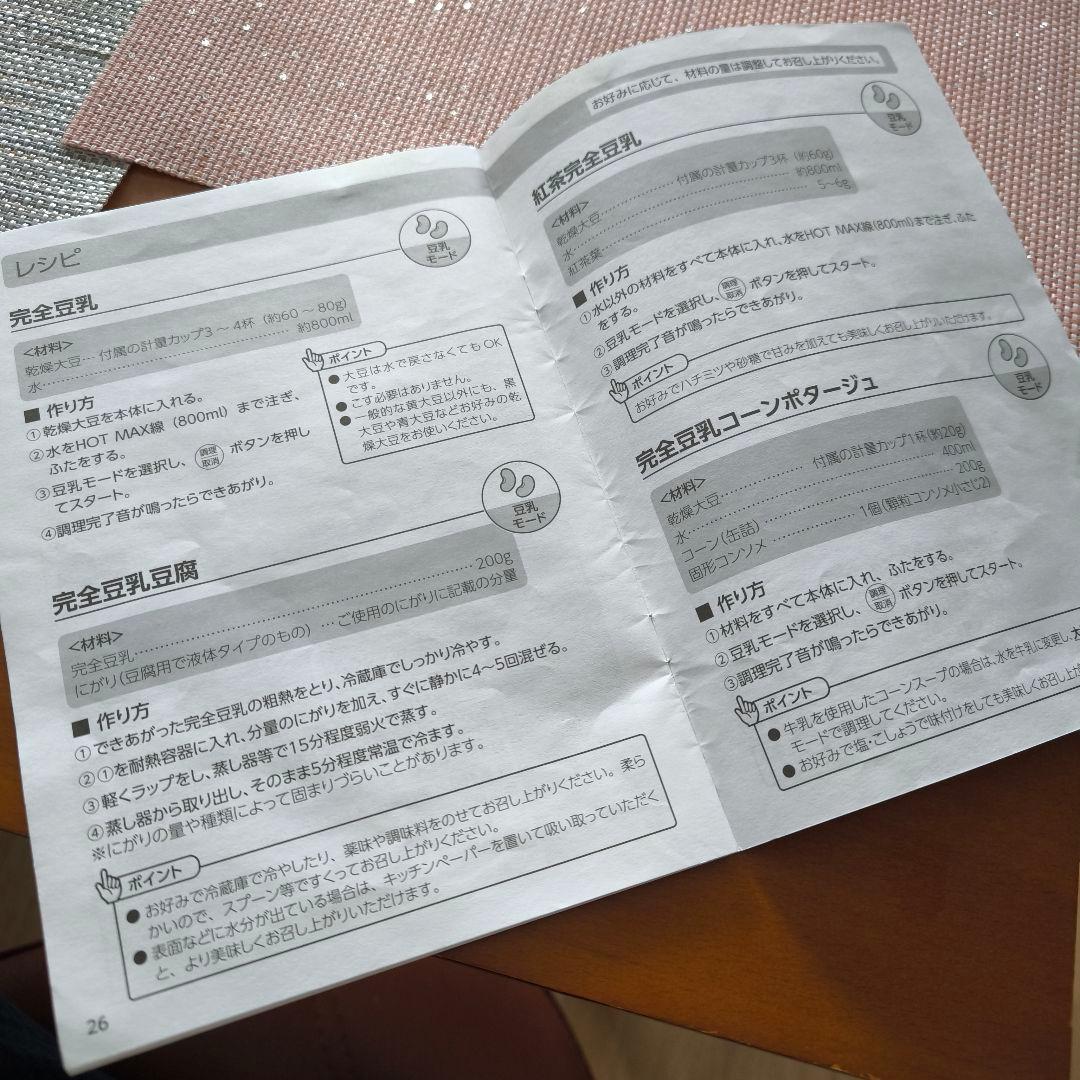 レシピ
豆乳
モード
完全豆乳
<材料>
乾燥大豆… 付属の計量カップ3 〜 4杯（約60 〜 80g)
水……………………………………………… 約800ml
■ 作り方
①乾燥大豆を本体に入れる。
②水をHOT MAX線（800ml）まで注ぎ、
ふたをする。
③豆乳モードを選択し、 調理 取消 ボタンを押し
てスタート。
④調理完了音が鳴ったらできあがり。
ポイント
● 大豆は水で戻さなくてもOK
です。
● こす必要はありません。
● 一般的な黄大豆以外にも、黒
大豆や青大豆などお好みの乾
燥大豆をお使いください。
豆乳
モード
完全豆乳豆腐
<材料>
完全豆乳…………………………………………………… 200g
にがり(豆腐用で液体タイプのもの) …ご使用のにがりに記載の分量
■ 作り方
①できあがった完全豆乳の粗熱をとり、冷蔵庫でしっかり冷やす。
②①を耐熱容器に入れ、分量のにがりを加え、すぐに静かに4〜5回混ぜる。
③軽くラップをし、蒸し器等で15分程度弱火で蒸す。
④蒸し器から取り出し、そのまま5分程度常温で冷ます。
※にがりの量や種類によって固まりづらいことがあります。
ポイント
● お好みで冷蔵庫で冷やしたり、薬味や調味料をのせてお召し上がりください。柔ら
かいので、スプーン等ですくってお召し上がりください。
● 表面などに水分が出ている場合は、キッチンペーパーを置いて吸い取っていただく
と、より美味しくお召し上がりいただけます。
26
お好みに応じて、材料の量は調整してお召し上がりください。
豆乳
モード
紅茶完全豆乳
<材料>
乾燥大豆…………………… 付属の計量カップ3杯（約60g)
水…………………………………………………… 約800ml
紅茶葉……………………………………………… 5〜6g
■ 作り方
①水以外の材料をすべて本体に入れ、水をHOT MAX線(800ml)まで注ぎ、ふた
をする。
②豆乳モードを選択し、 調理 取消 ボタンを押してスタート。
③調理完了音が鳴ったらできあがり。
ポイント
お好みでハチミツや砂糖で甘みを加えても美味しくお召し上がりいただけます。
豆乳
モード
完全豆乳コーンポタージュ
<材料>
乾燥大豆…………………… 付属の計量カップ1杯(約20g)
水…………………………………………………… 400ml
コーン(缶詰)…………………………………………… 200g
固形コンソメ …………………… 1個(顆粒コンソメ小さじ2)
■ 作り方
①材料をすべて本体に入れ、ふたをする。
②豆乳モードを選択し、 調理 取消 ボタンを押してスタート。
③調理完了音が鳴ったらできあがり。
ポイント
● 牛乳を使用したコーンスープの場合は、水を牛乳に変更し、
モードで調理してください。
● お好みで塩・こしょうで味付けをしても美味しくお召し上が